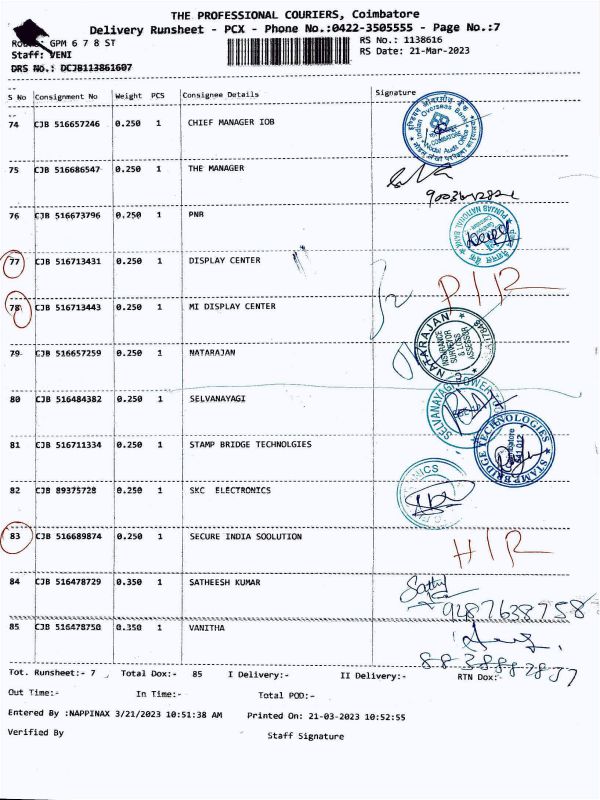 THE PROFESSIONAL COURIERS, Coimbatore
Delivery Runsheet - PCX - Phone No.:0422-3505555 - Page No.:7
Route: GPM 6 7 8 ST RS No.: 1138616
Staff: VENI RS Date: 21-Mar-2023
DRS No.: DCJB113861607
S No Consignment No Weight PCS Consignee Details Signature
74 CJB 516657246 0.250 1 CHIEF MANAGER IOB
Indian Overseas Bank
COIMBATORE
75 CJB 516686547 0.250 1 THE MANAGER
76 CJB 516673796 0.250 1 PNB
PUNJAB NATIONAL BANK
77 CJB 516713431 0.250 1 DISPLAY CENTER
78 CJB 516713443 0.250 1 MI DISPLAY CENTER
79 CJB 516657259 0.250 1 NATARAJAN
NATARAJAN
INSURANCE
SURVEYOR
& LOSS
ASSESSOR
80 CJB 516484382 0.250 1 SELVANAYAGI
SELVANAYAGI POWER
81 CJB 516711334 0.250 1 STAMP BRIDGE TECHNOLGIES
STAMP BRIDGE TECHNOLOGIES
82 CJB 89375728 0.250 1 SKC ELECTRONICS
83 CJB 516689874 0.250 1 SECURE INDIA SOOLUTION
84 CJB 516478729 0.350 1 SATHEESH KUMAR
9287638758
85 CJB 516478750 0.350 1 VANITHA
Tot. Runsheet:- 7 Total Dox:- 85 I Delivery:- II Delivery:- RTN Dox:-
Out Time:- In Time:- Total POD:-
Entered By :NAPPINAX 3/21/2023 10:51:38 AM Printed On: 21-03-2023 10:52:55
Verified By Staff Signature